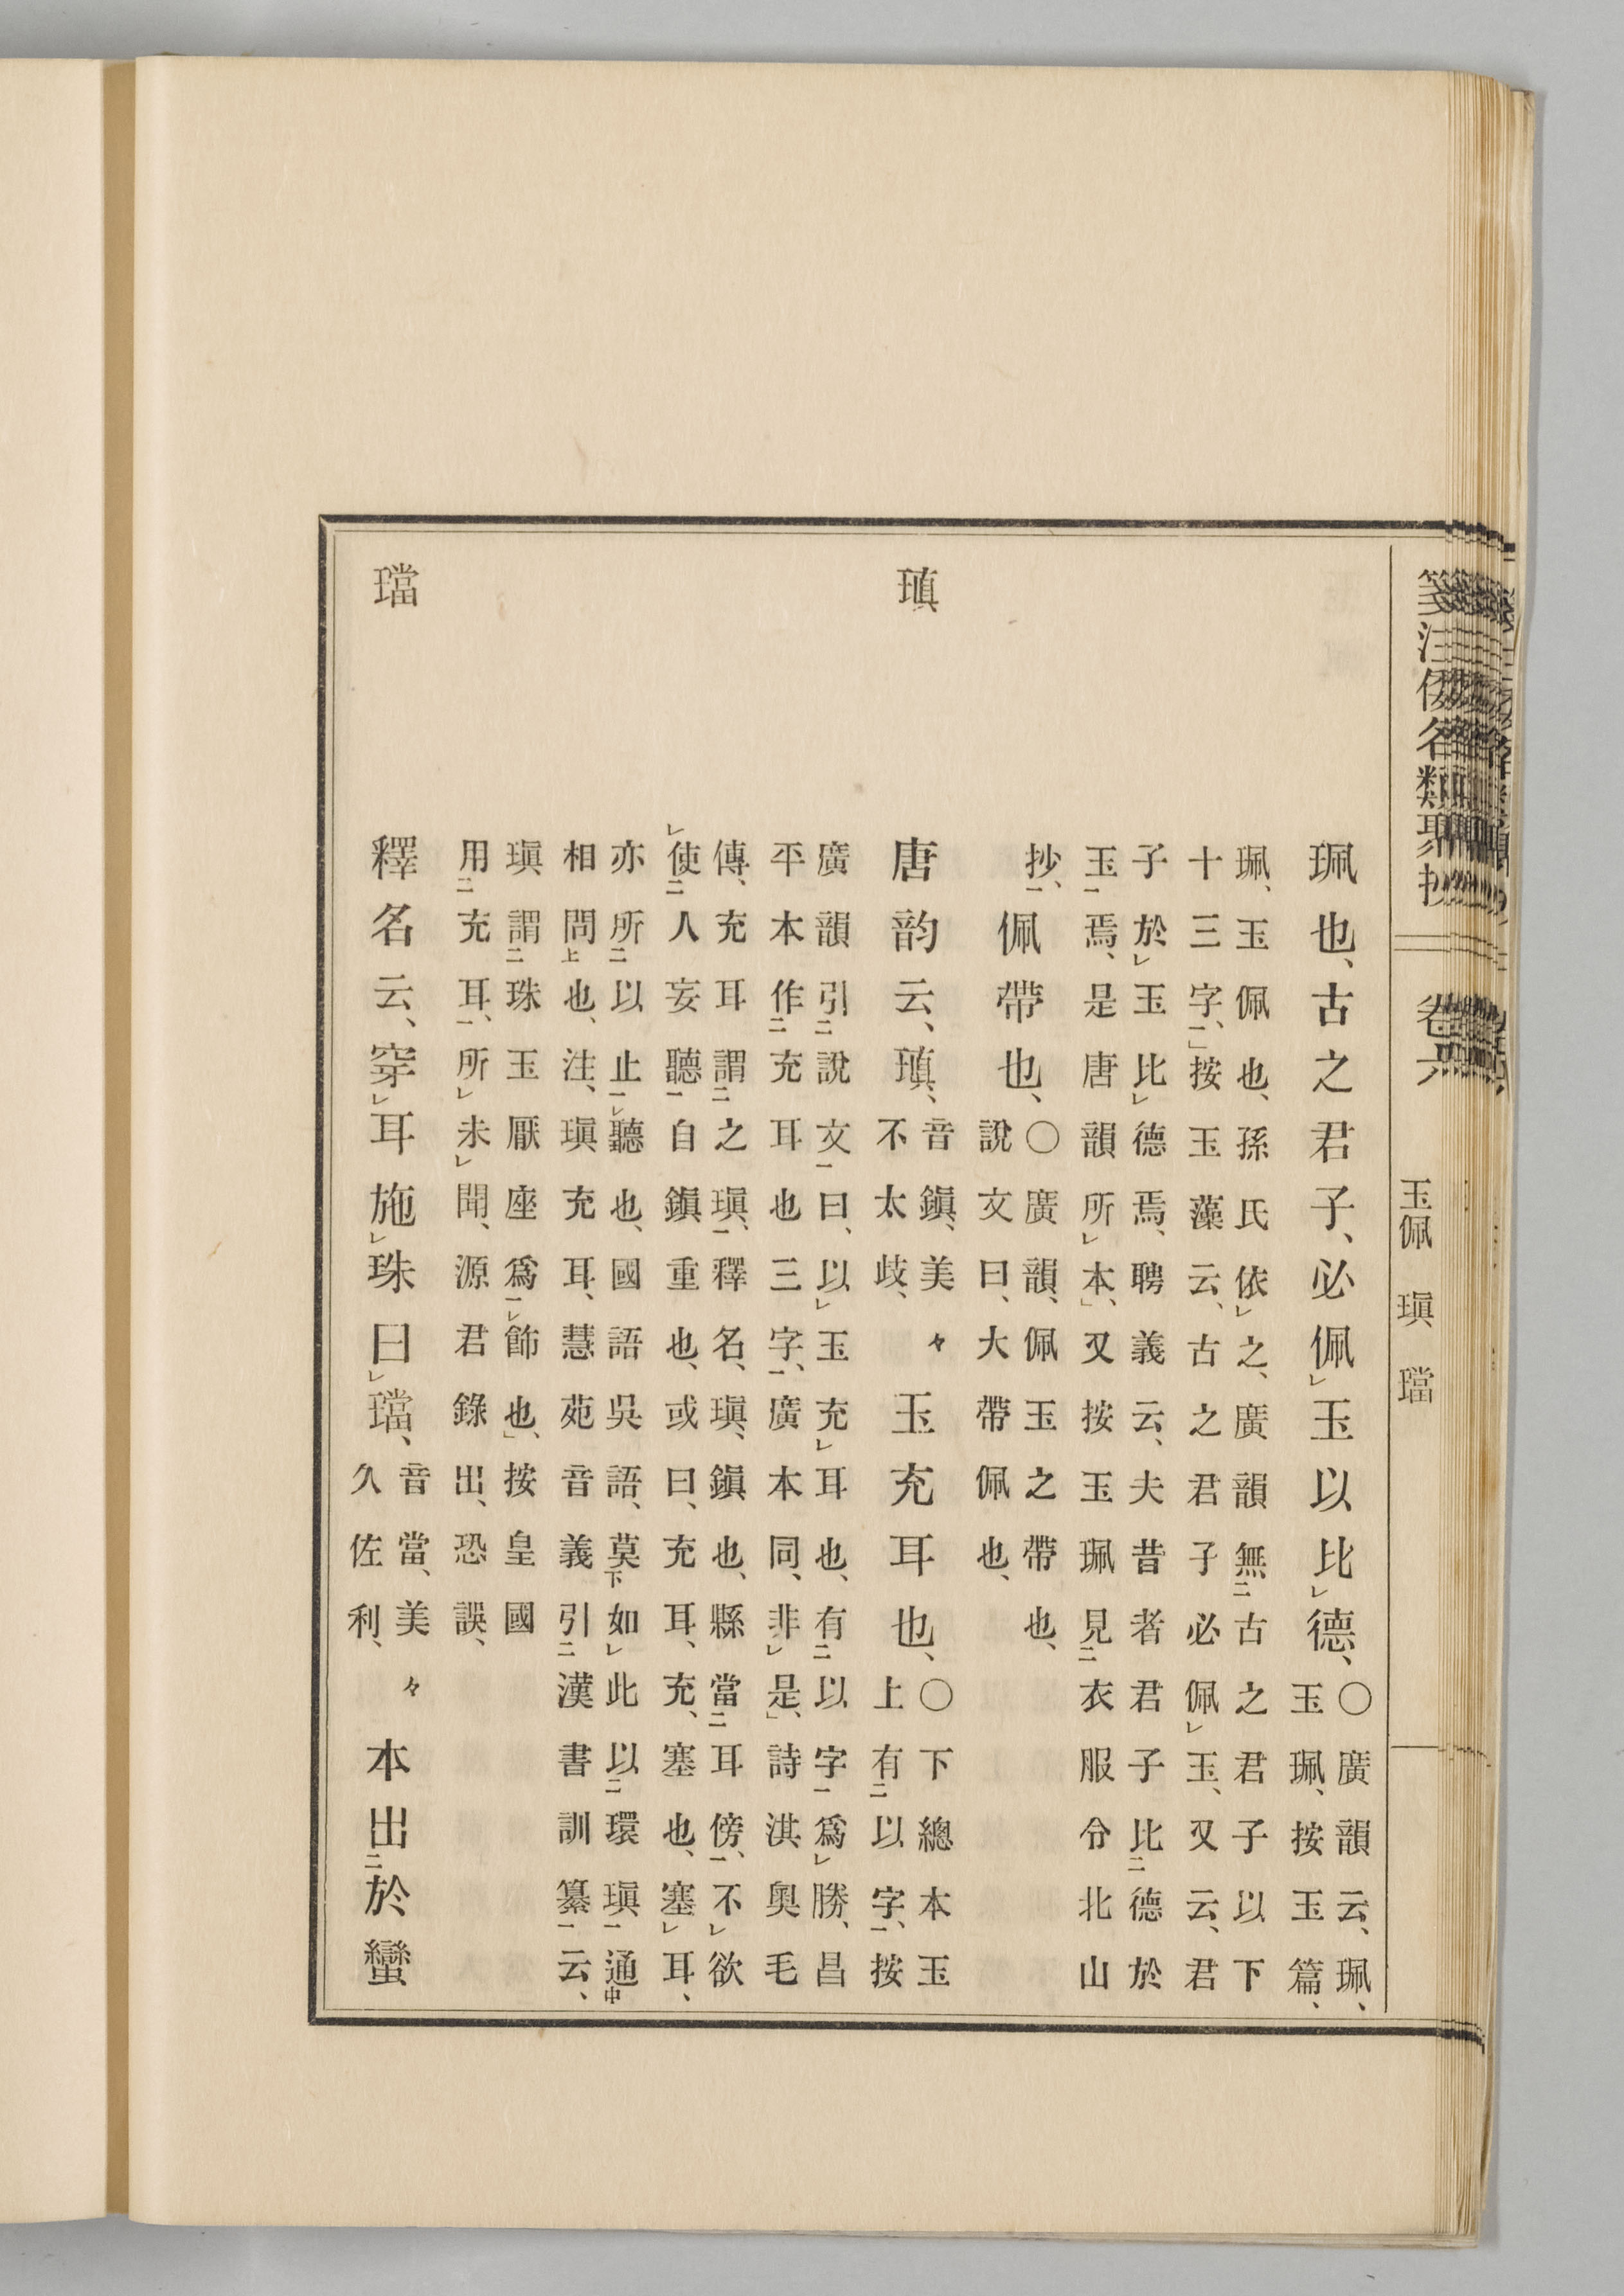 箋注倭名類聚抄 卷六 玉佩 瑱 璫
珮也、古之君子、必佩レ玉以比レ德、
〇廣韻云、珮、
玉珮、按玉篇、
珮、玉佩也、孫氏依レ之、廣韻無二古之君子以下
十三字、一按玉藻云、古之君子必佩レ玉、又云、君
子於レ玉比レ德焉、聘義云、夫昔者君子比二德於
玉一焉、是唐韻所レ本、又按玉珮見二衣服令北山
抄、一
佩帶也、
〇廣韻、佩玉之帶也、
說文曰、大帶佩也、
瑱
唐韵云、瑱、
音鎭、美々
不太歧、
玉充耳也、
〇下總本玉
上有二以字、一按
廣韻引二說文一曰、以レ玉充レ耳也、有二以字一爲レ勝、昌
平本作二充耳也三字、一廣本同、非レ是、詩淇奧毛
傳、充耳謂二之瑱、一釋名、瑱、鎭也、縣當二耳傍、一不レ欲
レ使二人妄聽一自鎭重也、或曰、充耳、充、塞也、塞レ耳、
亦所二以止一レ聽也、國語吳語、莫下如レ此以二環瑱一通中
相問上也、注、瑱充耳、慧苑音義引二漢書訓纂一云、
瑱謂二珠玉厭座爲一レ飾也、按皇國
用二充耳、一所レ未レ聞、源君錄出、恐誤、
璫
釋名云、穿レ耳施レ珠曰レ璫、
音當、美々
久佐利、
本出二於蠻